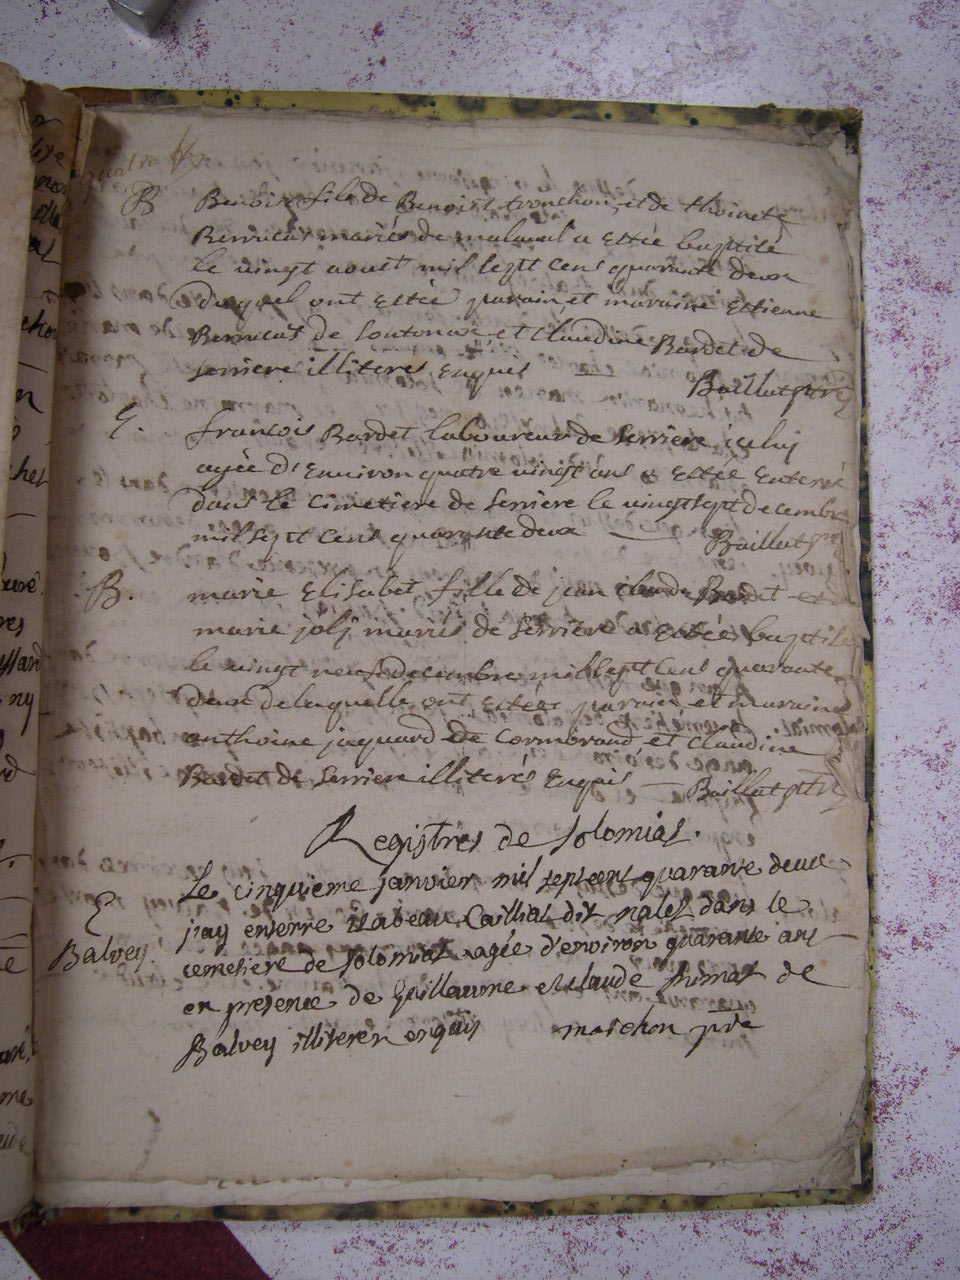 B Benoist fils de Benoist tronchon, et de thoinete
mariés de malaval a Estée baptisé
le vingt aoust mil sept cens quarante deux
Duquel ont Estée parain et maraine Estienne
de et Claudine Bardet de
serriere illiterés Enquis Baillat ptre
E. francois Bardet laboureur de serriere iceluy
agée d'Environ quatre vingt ans a Estée Enterré
dans le Cimetiere de serriere le vingt sept decembre
mil sept cens quarante deux Baillat ptre
B. marie Elisabet fille de jean claude Bardet et
marie joly mariés de serriere a Estée baptisé
le vingt neuf decembre mil sept cens quarante
deux de laquelle ont Estée parain et maraine
anthoine jaquard de Cormorand, et Claudine
Bardet de serriere illiterés Enquis Baillat ptre
Registres de solomiat.
Le cinquieme janvier mil sept cent quarante deux
E j'ay enterré isabeau Cailliat dit dans le
Balvey. cemetiere de solomiat agée d'environ quarante ans
en presence de Guillaume et claude thomas de
Balvey illiteréz enquis marchon ptre